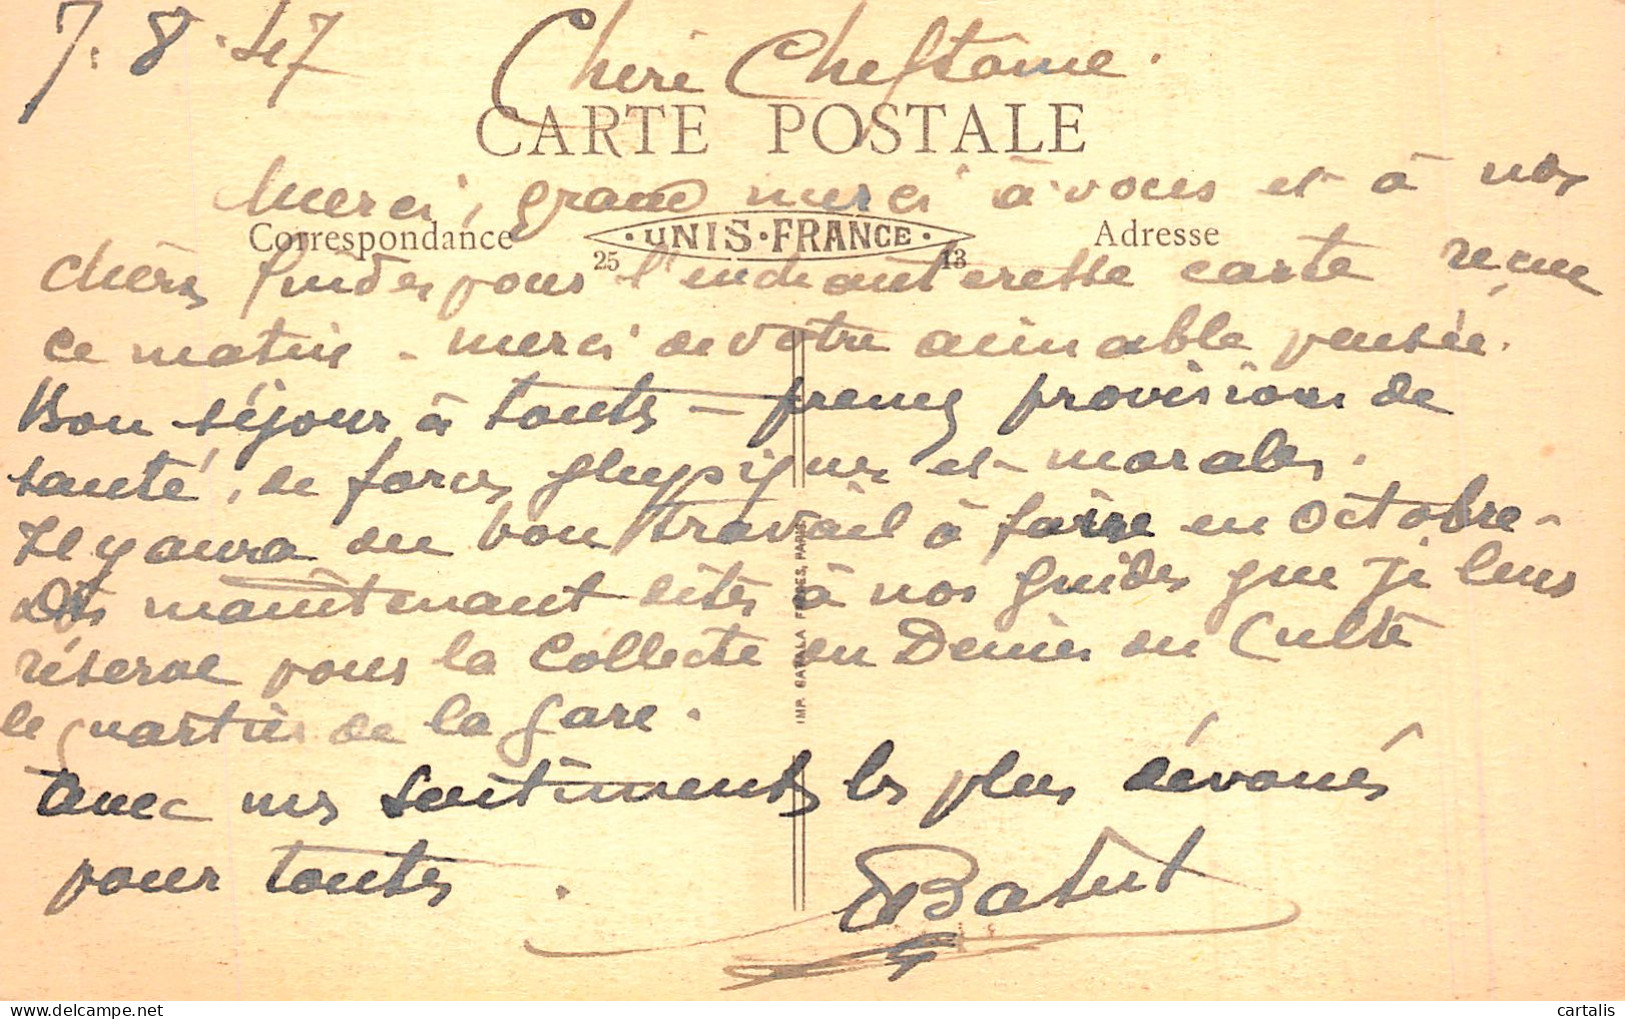 7.8.47 Chère Cheftaine.
CARTE POSTALE
Merci, grand merci à vous et à nos
Correspondance UNIS-FRANCE Adresse
25 13
chères guides pour l'enchanteresse carte reçue
ce matin - merci de votre aimable pensée.
Bon séjour à toutes - prenez provisions de
santé, de forces physiques et morales.
Il y aura du bon travail à faire en Octobre -
Dès maintenant dites à nos guides que je leur
réserve pour la Collecte du Denier du Culte
le quartier de la gare.
Avec mes sentiments les plus dévoués
pour toutes.
Batut
cartalis